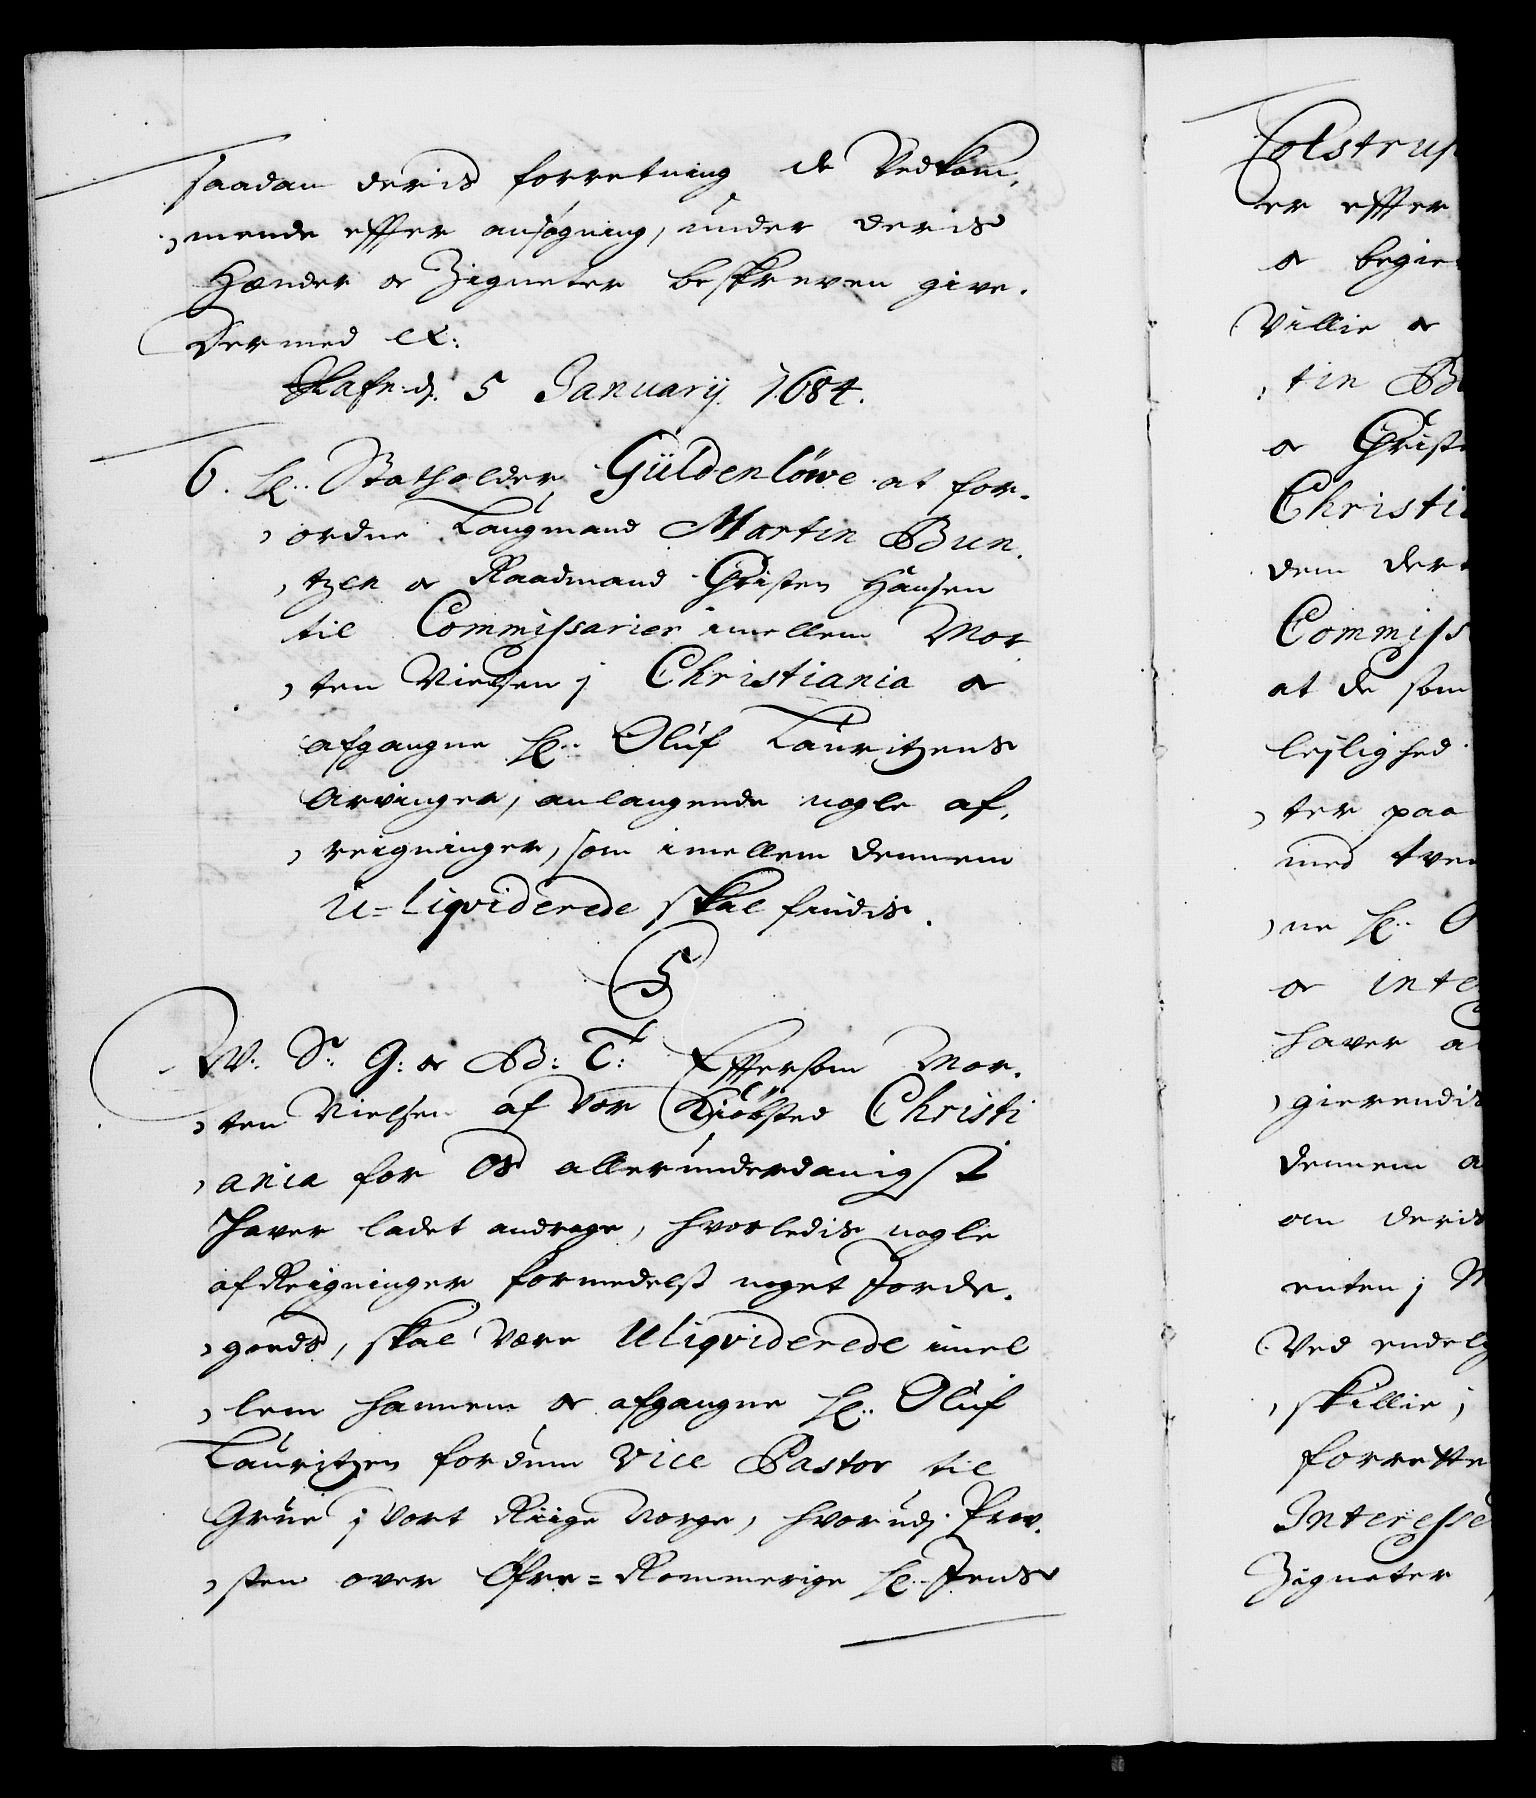 saadan deris forretning de Vedkom,
,mende effter ansøgning, under deris
Hænder oc Zigneter beskreven give.
Dermed etc:
Hafn. d. 5 Januarij 1684.
6. H.. Statholder Güldenlöwe at for,
,ordne Laugmand Martin Bun,
,tzen oc Raadmand Christen Hansen
til Commissarier imellem Mor
,ten Nielsen j Christiania oc
afgangne Sl.. Oluf Lauritzens
Arvinger, anlangende nogle af,
,reigninger, som imellem dennem
u=liqviderede skal findis.
5
V. S. G: oc B: T: Effersom Mor,
,ten Nielsen af vor Kiöbsted Christi
,ania for Os allerunderdanigst
haver ladet andrage, hvorledis nogle
afReigninger formedelst noget Jorde,
,goeds, skal være Uliqviderede imel
,lem hannem oc afgangne Sl.. Oluf
Lauritzen fordum Vice Pastor til
Grue j vort Riige Norge, hvorudj Prov,
,sten over Öfre=Rommerige H.. Jens
Colstrup
er effter
oc begier
Villie oc
,tin Bu
oc Christe
Christi
dem der
Commiss
at de som
leylighed
,ter paa
med tven
,ne Sl.. O
oc inte
haver a
,gierendis
dennem a
om deris
enten j M
Ved endelig
,skillie,
forrette
Interesse
Zigneter